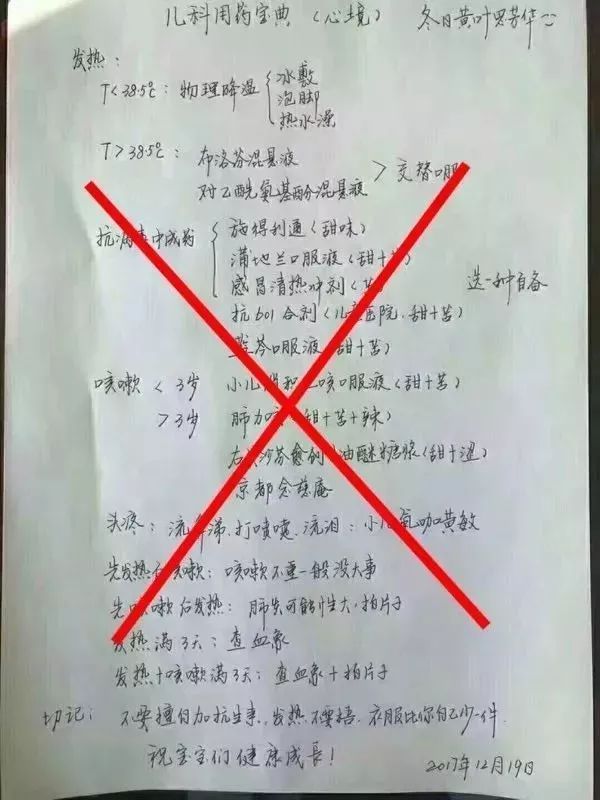 儿科用药宝典（心境） 冬日黄叶思芳华
发热：
T<38.5℃：物理降温 { 冰敷
泡脚
热水澡
T>38.5℃：布洛芬混悬液
对乙酰氨基酚混悬液 > 交替口服
抗病毒中成药 { 施得利通（甜味）
蒲地兰口服液（甜+苦）
感冒清热冲剂（苦） 选一种自备
抗601合剂（儿童医院.甜+苦）
芩口服液（甜+苦）
咳嗽 <3岁 小儿 咳口服液（甜+苦）
>3岁 肺力咳（甜+苦+辣）
右美沙芬愈创 油醚糖浆（甜+涩）
京都念慈庵
头疼：流鼻涕.打喷嚏.流泪：小儿氨咖黄敏
先发热后咳嗽：咳嗽不重一般没大事
先咳嗽后发热：肺炎可能性大,拍片子
发热满3天：查血象
发热+咳嗽满3天：查血象+拍片子
切记： 不要擅自加抗生素,发热不要捂.衣服比你自己少一件.
祝宝宝们健康成長！
2017年12月19日